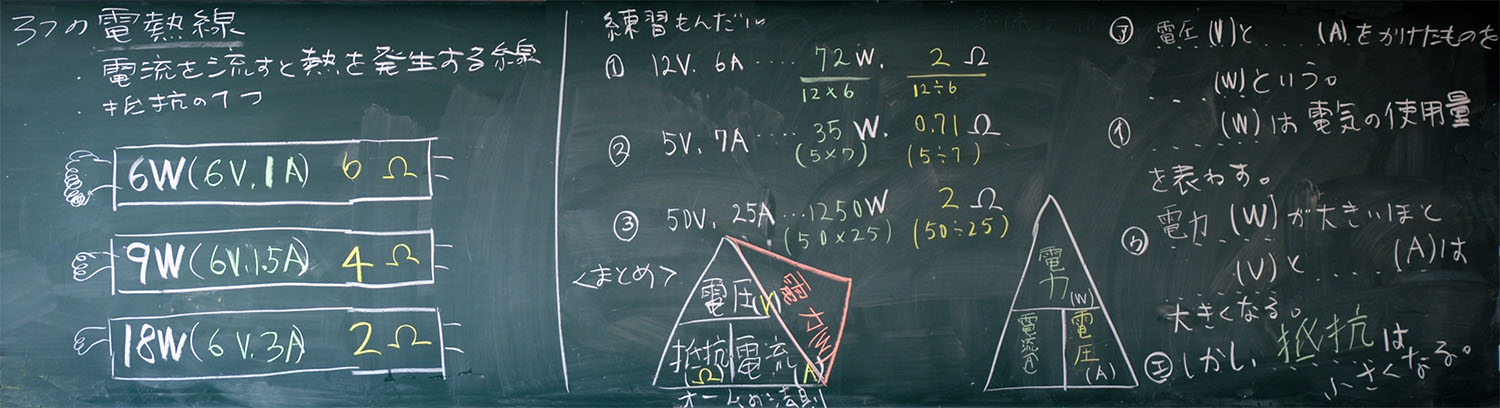 3つの電熱線
・電流を流すと熱を発生する線
・抵抗の1つ
6W(6V.1A) 6Ω
9W(6V.1.5A) 4Ω
18W(6V.3A) 2Ω
練習もんだい
① 12V. 6A ‥‥ 72W. 2Ω
12×6 12÷6
② 5V. 7A ‥‥ 35W. 0.71Ω
(5×7) (5÷7)
③ 50V. 25A ‥‥ 1250W 2Ω
(50×25) (50÷25)
<まとめ>
電圧 V
電力W
抵抗 電流
(Ω) (A)
オームの法則
電力
(W)
電流 電圧
(A)
㋐ 電圧(V)と‥‥(A)をかけたものを
‥‥(W)という。
㋑ ‥‥(W)は電気の使用量
を表わす。
㋒ 電力(W)が大きいほど
‥‥(V)と‥‥(A)は
大きくなる。
㋓ しかし、抵抗は
小さくなる。